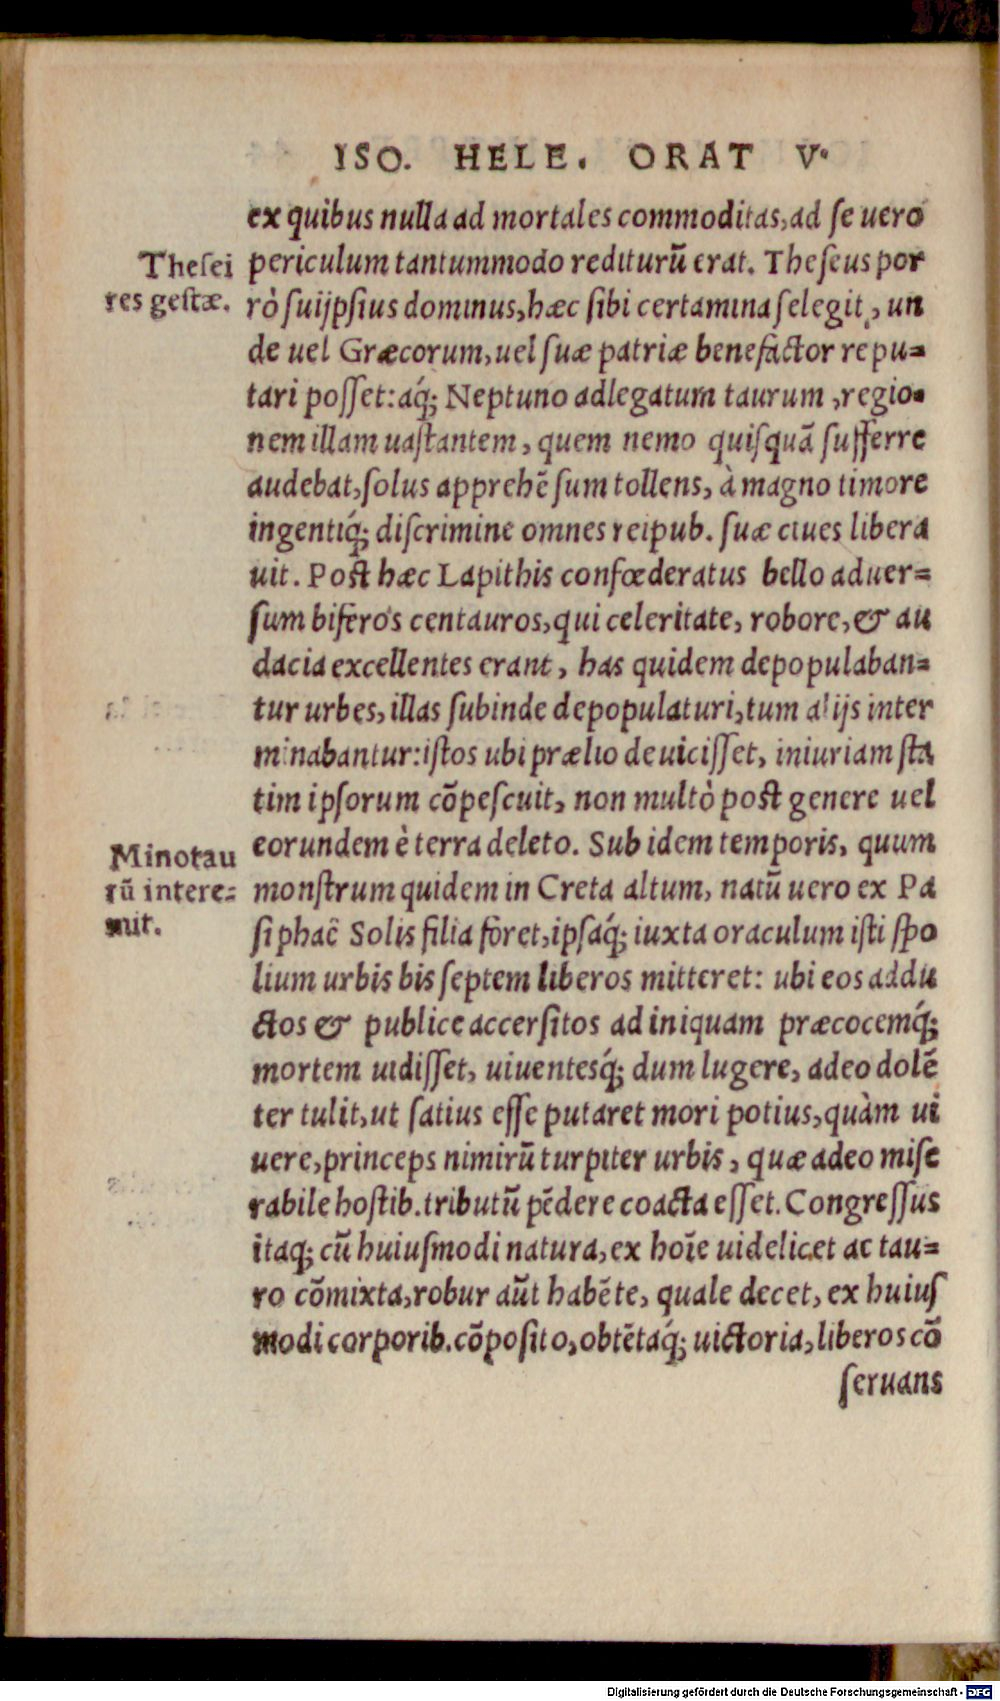 ISO. HELE. ORAT V.
ex quibus nulla ad mortales commoditas, ad se uero
Thesei
periculum tantummodo rediturũ erat. Theseus por
res gestæ.
rò suijpsius dominus, hæc sibi certamina selegit, un
de uel Græcorum, uel suæ patriæ benefactor repu=
tari posset: aq́; Neptuno adlegatum taurum, regio=
nem illam uastantem, quem nemo quisquã sufferre
audebat, solus apprehẽsum tollens, à magno timore
ingentiq́; discrimine omnes reipub. suæ ciues libera
uit. Post hæc Lapithis confœderatus bello aduer=
sum biferos centauros, qui celeritate, robore, & au
dacia excellentes erant, has quidem depopulaban=
tur urbes, illas subinde depopulaturi, tum alijs inter
minabantur: istos ubi prælio deuicisset, iniuriam sta
tim ipsorum cõpescuit, non multò post genere uel
Minotau
rũ intere=
mit.
eorundem è terra deleto. Sub idem temporis, quum
monstrum quidem in Creta altum, natũ uero ex Pa
siphaë Solis filia foret, ipsaq́; iuxta oraculum isti spo
lium urbis bis septem liberos mitteret: ubi eos addu
ctos & publice accersitos ad iniquam præcocemq́;
mortem uidisset, uiuentesq́; dum lugere, adeo dolẽ
ter tulit, ut satius esse putaret mori potius, quàm ui
uere, princeps nimirũ turpiter urbis, quæ adeo mise
rabile hostib. tributũ pẽdere coacta esset. Congressus
itaq; cũ huiusmodi natura, ex hoĩe uidelicet ac tau=
ro cõmixta, robur aũt habẽte, quale decet, ex huius
modi corporib. cõposito, obtẽtaq́; uictoria, liberos cõ
seruans
Digitalisierung gefördert durch die Deutsche Forschungsgemeinschaft - DFG